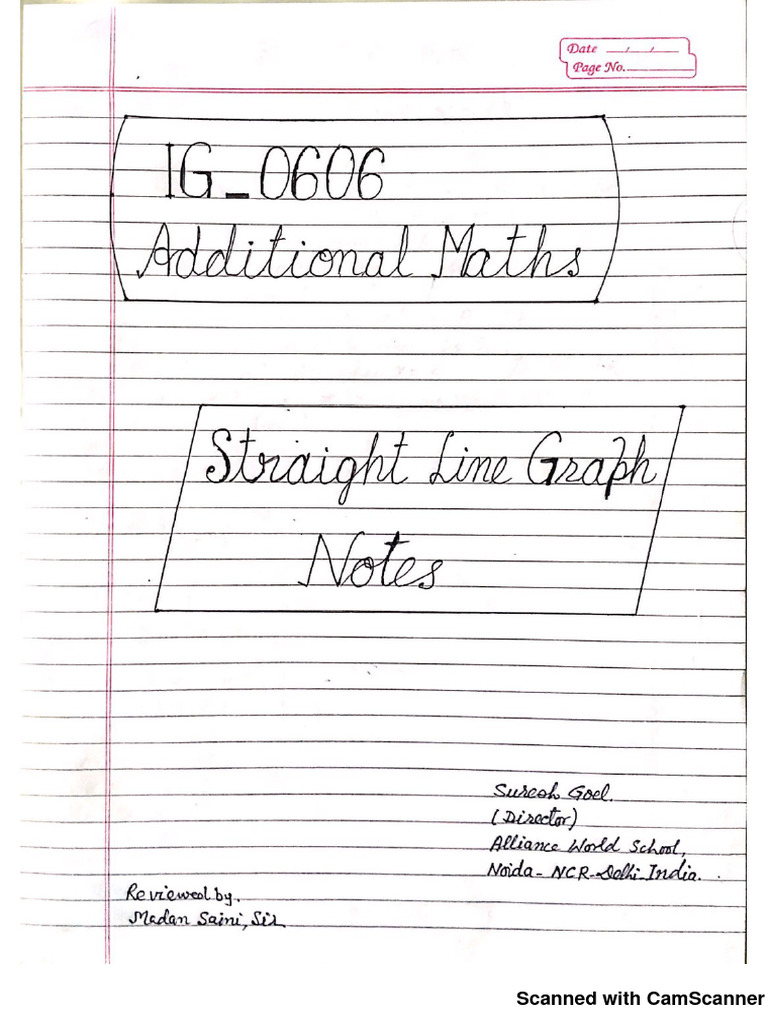 Date
Page No.
IG_0606
Additional Maths
Straight Line Graph
Notes
Suresh Goel.
(Director)
Alliance World School,
Noida- NCR-Delhi-India.
Reviewed by.
Madan Saini, Sir
Scanned with CamScanner